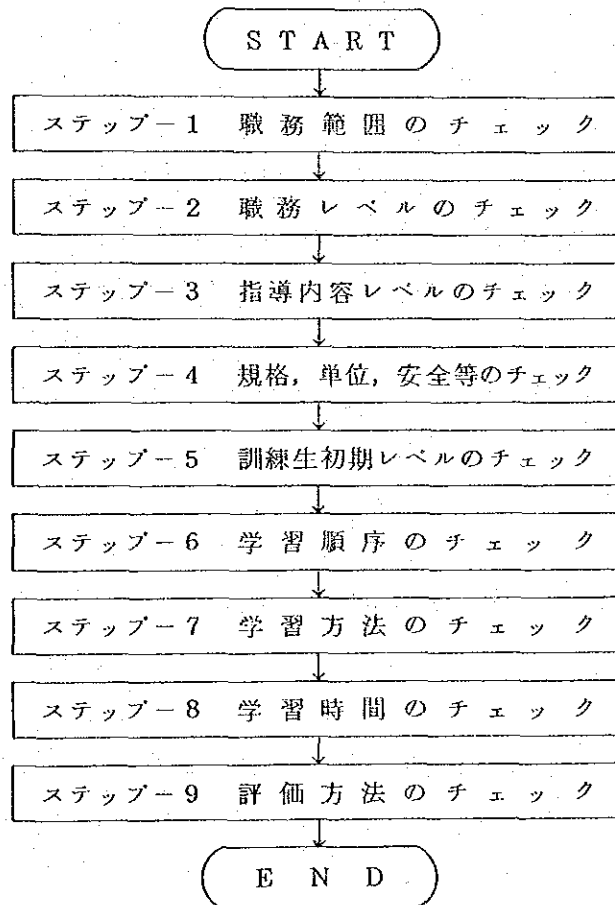 START
ステップ－1 職務範囲のチェック
ステップ－2 職務レベルのチェック
ステップ－3 指導内容レベルのチェック
ステップ－4 規格，単位，安全等のチェック
ステップ－5 訓練生初期レベルのチェック
ステップ－6 学習順序のチェック
ステップ－7 学習方法のチェック
ステップ－8 学習時間のチェック
ステップ－9 評価方法のチェック
END